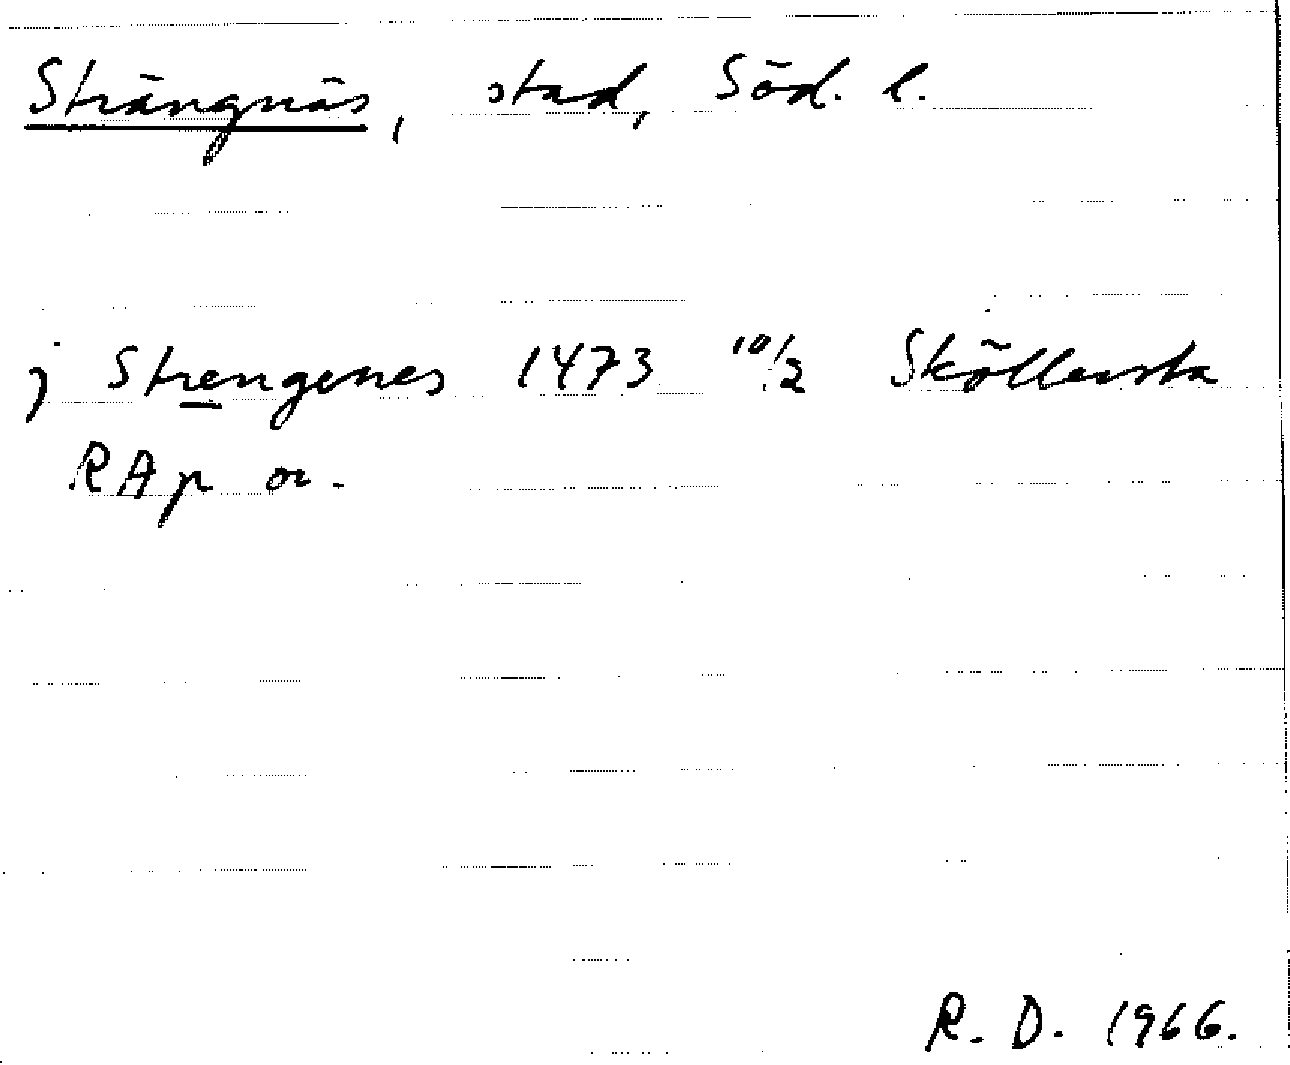 Strängnäs, stad, Söd. l.
j Strengenes 1473 10/2 Sköllersta
RAp or.
R. D. 1966.